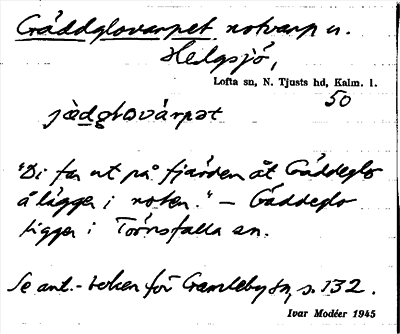 Gäddglovarpet notvarp u.
Helgsjö,
Lofta sn, N. Tjusts hd, Kalm. l.
50
jädglovárpət
"Di far ut på fjärden åt Gäddeglo
å lägger i noten." – Gäddeglo
ligger i Törnsfalla sn.
Se ant.-boken för Gamleby sn, s. 132.
Ivar Modéer 1945